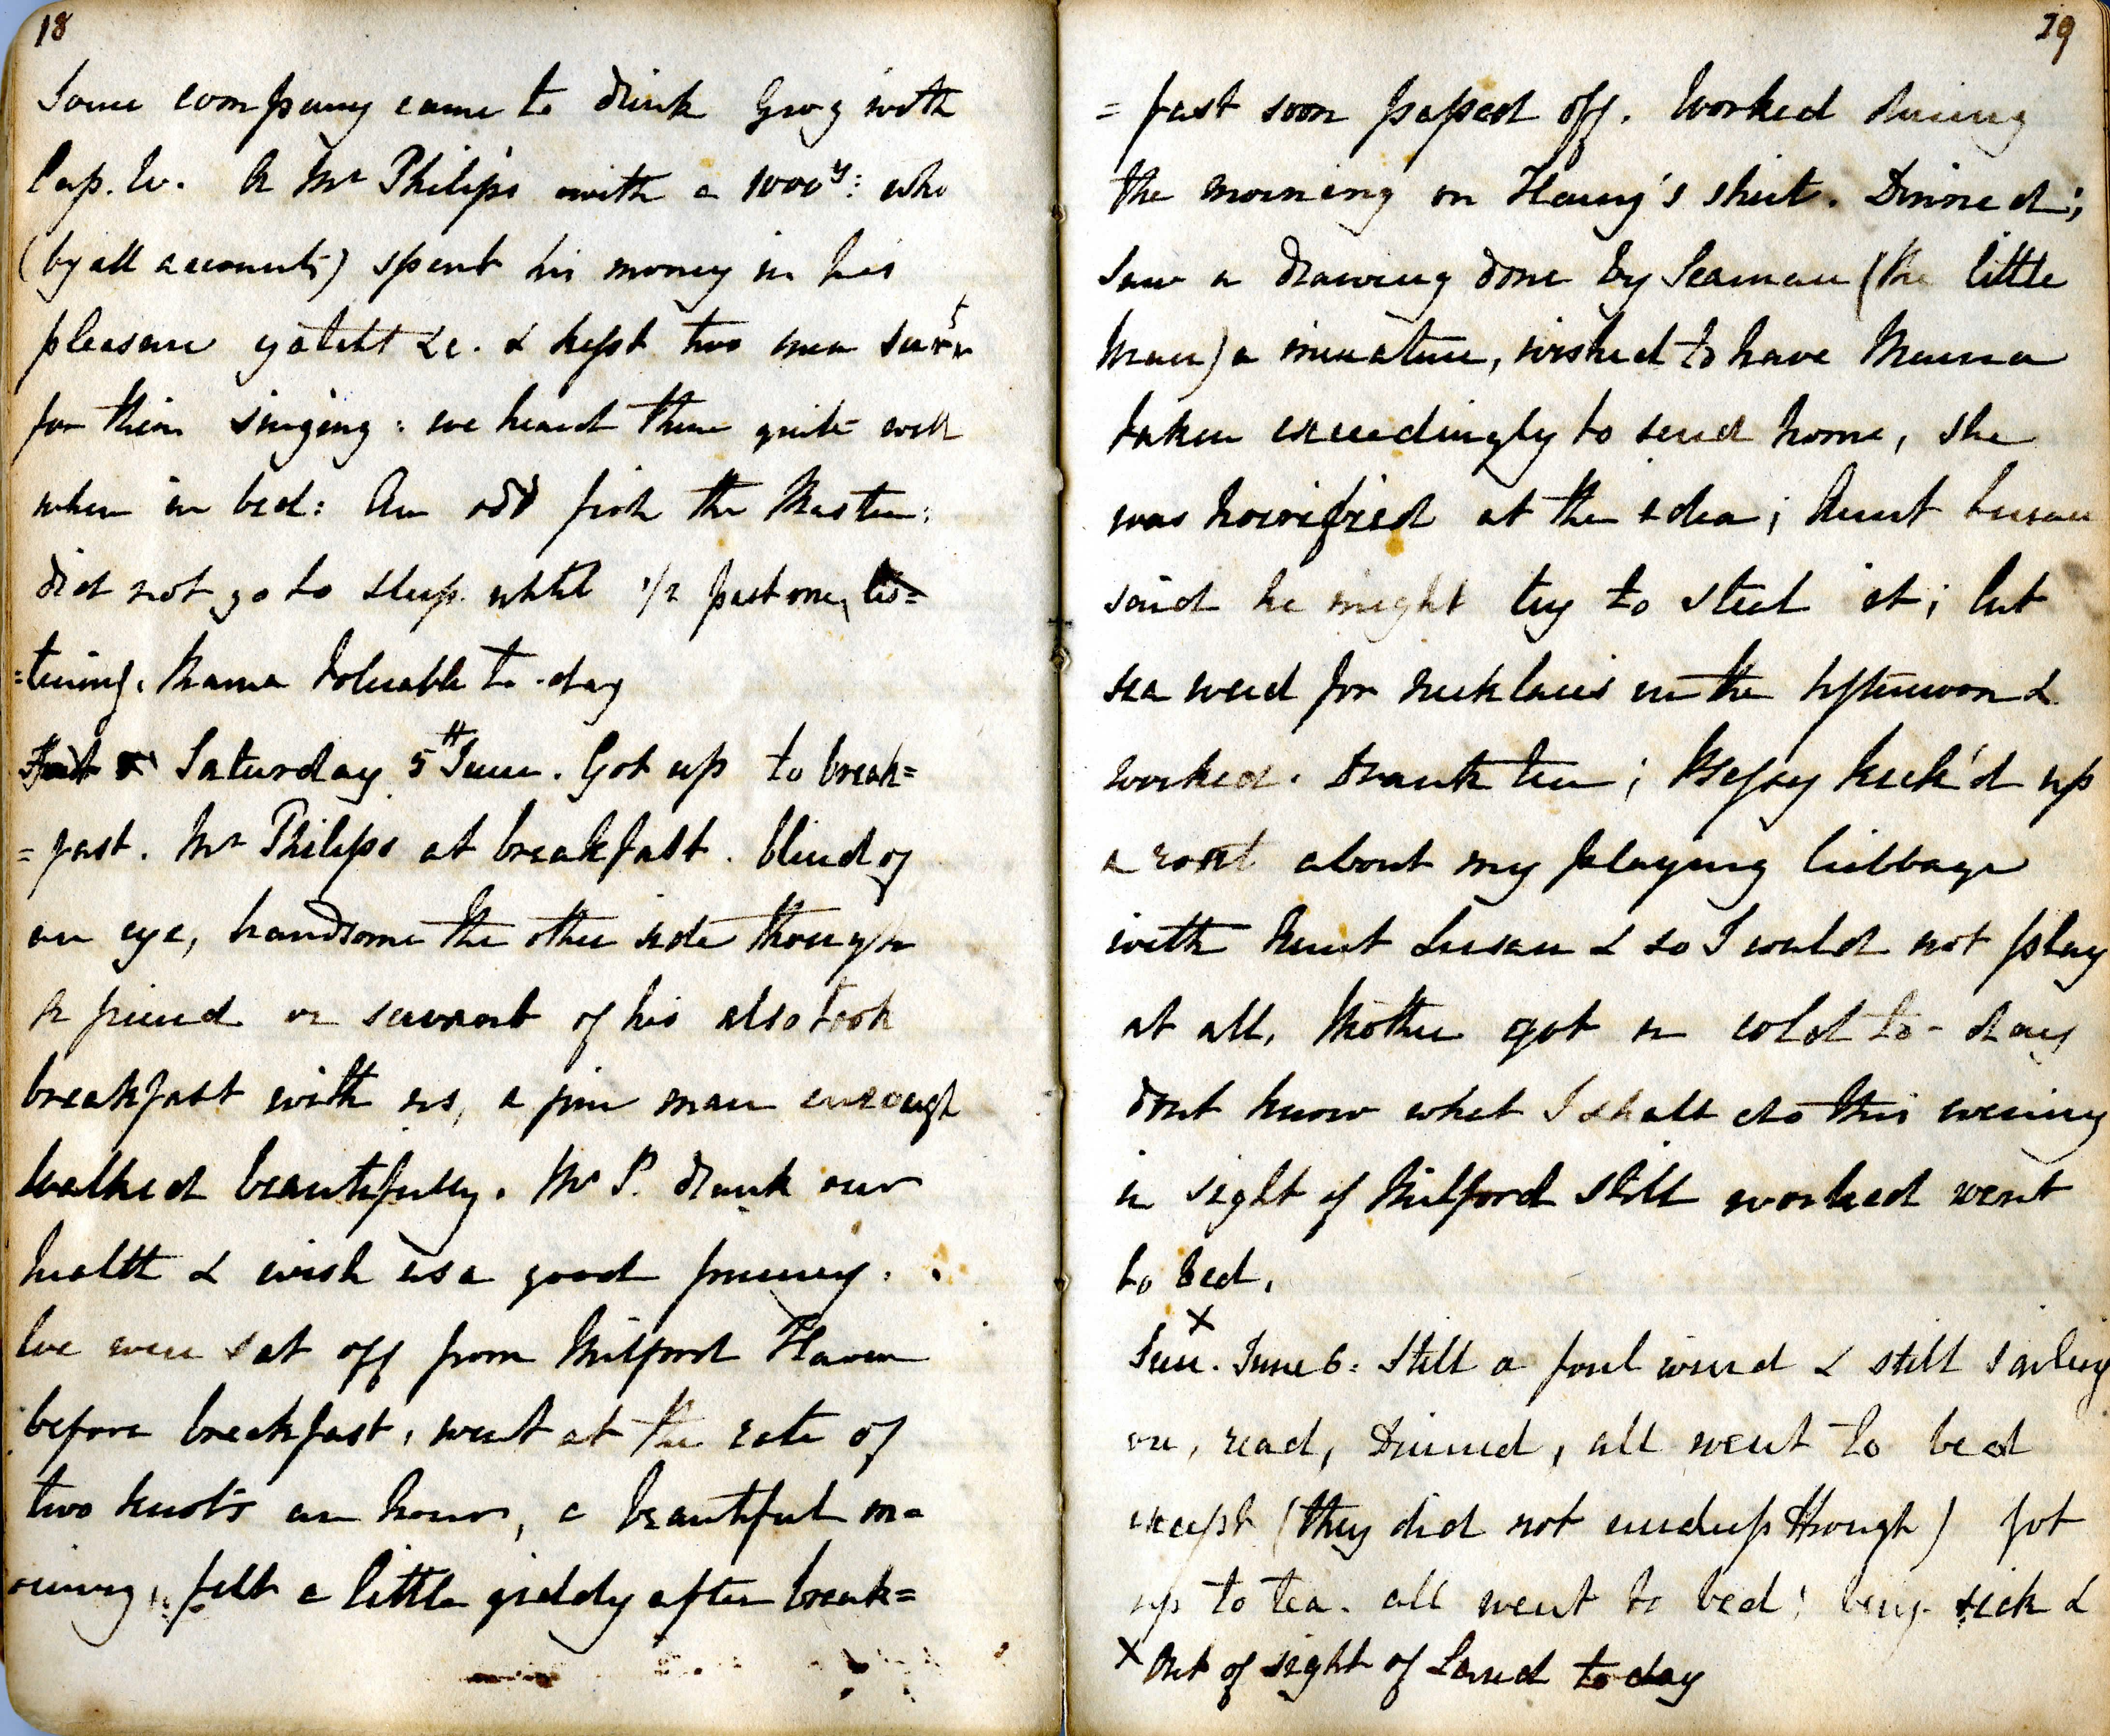 18
Some company came to drink Grog with
Cap. W. A Mr Philips with a 1000 y: who
(by all accounts) spent his money in his
pleasure yatcht &c. & kept two men
for their singing: we heard them quite well
when in bed: An odd fish the Master:
did not go to sleep until 1/2 past one, lis=
=tning. Mama toluable to-day
Saturday 5th June. Got up to break=
=fast. Mr Philips at breakfast. blind of
an eye, handsome the other side though
A friend or servant of his also took
breakfast with us, a fine man enough
walked beautifully. Mr P. drank our
health & wish us a good journey.
We were sat off from Milford Haven
before breakfast, went at the rate of
two knots an hour, a beautiful mo
orning, felt a little giddy after break=
19
=fast soon passed off. Worked during
the morning on Henry's shirt. Dinned;
Saw a drawing done by Seaman (the little
Man) a minature, wished to have Mama
taken exceedingly to send home, she
was horrified at the idea; Aunt Susan
said he might try to steal it; Cut
sea weed for necklaces in the afternoon &
worked. Drank tea; Bessy kick'd up
a rout about my playing Cribbage
with Aunt Susan & so I would not play
at all. Mother got a cold to-day
dont know what I shall do this evening
in sight of Milford still worked went
to bed.
x
Sun. June 6: Still a foul wind & still sailing
on, read, Dinned, all went to bed
except (they did not undress though) got
up to tea. all went to bed; being sick &
x Out of sight of Land to day